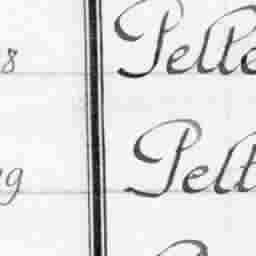 8 Pelle
g Pelt